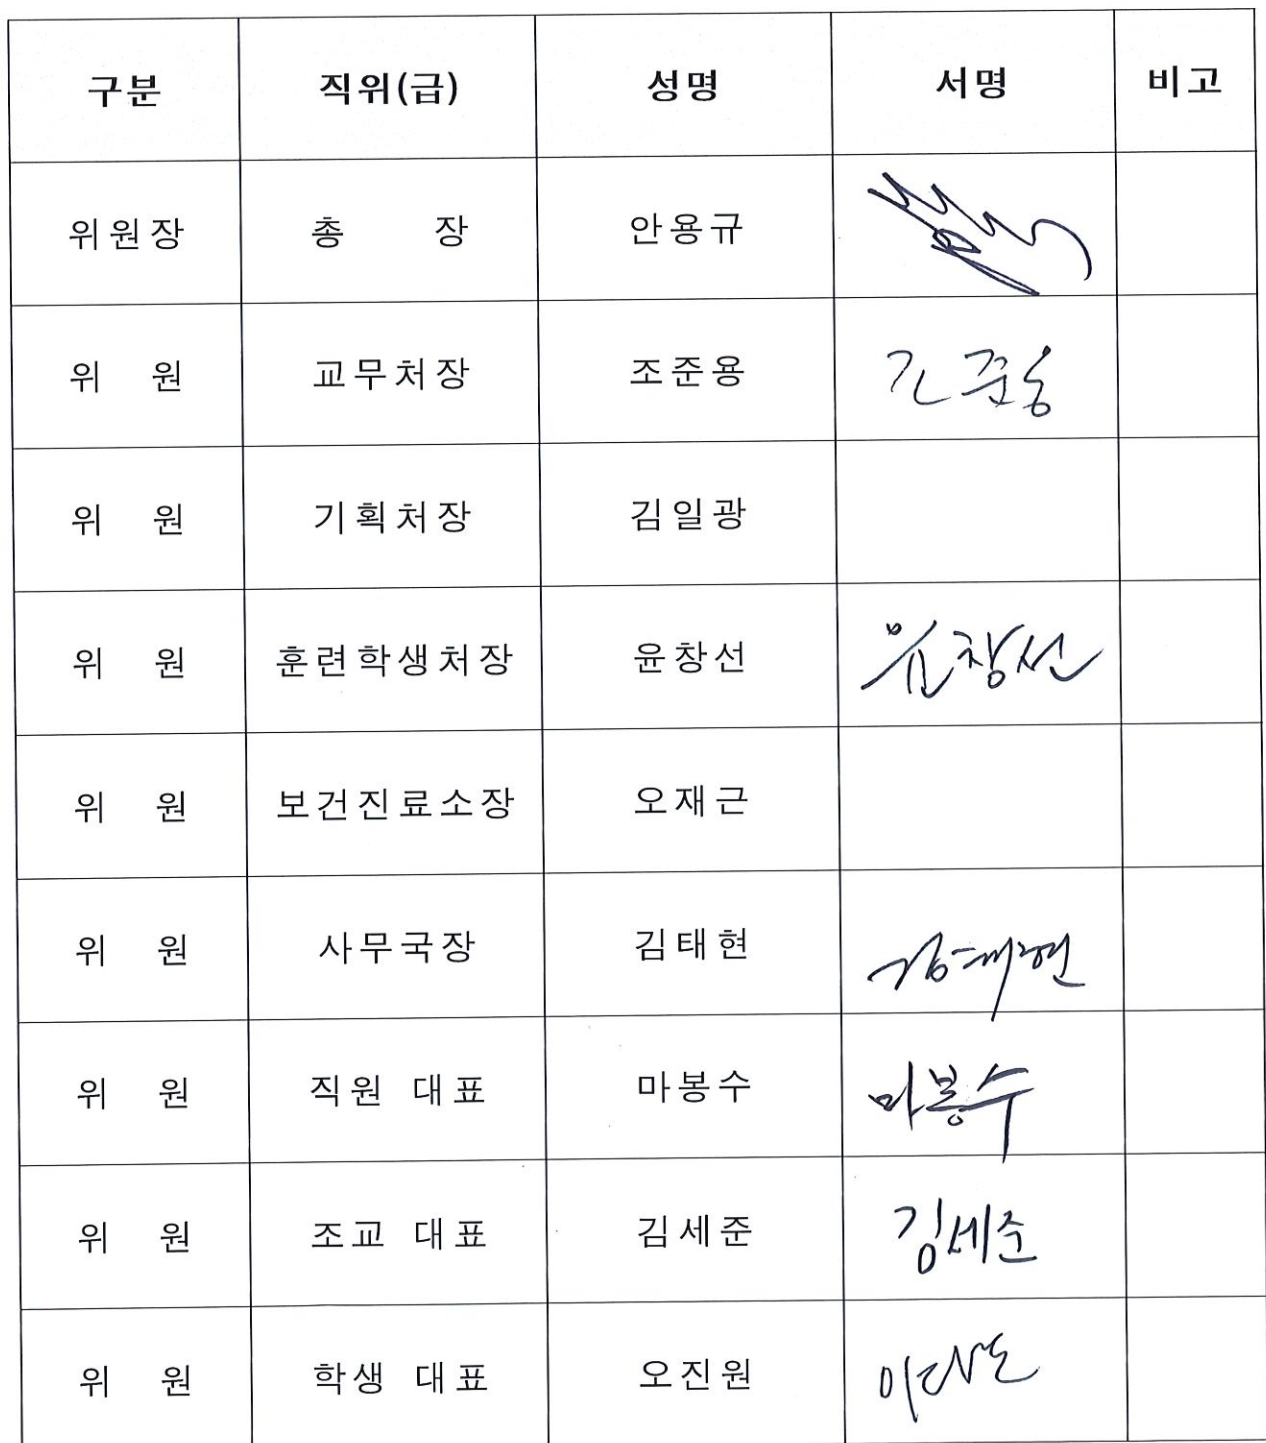 구분 직위(급) 성명 서명 비고
위원장 총 장 안용규
위 원 교무처장 조준용
위 원 기획처장 김일광
위 원 훈련학생처장 윤창선 윤창선
위 원 보건진료소장 오재근
위 원 사무국장 김태현 김태현
위 원 직원 대표 마봉수 마봉수
위 원 조교 대표 김세준 김세준
위 원 학생 대표 오진원